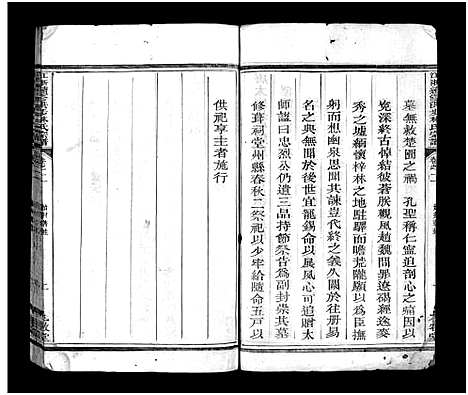 墓無赦楚園之禍　孔聖稱仁寧追剖心之痛固以
寃深終古悼結彼蒼朕觀風趙魏問罪遼碣經途麥
秀之墟緬懷梓林之地駐驛而瞻荒隴願以爲臣撫
躬而想幽泉思其諫豈代終之義久闕於往册易
名之典無聞於後世宜寵錫命以展風心可追贈太
師諡曰忠烈公仍遺三品持節祭吿爲副封崇其墓
修葺祠堂州縣春秋二祭祀以少牢給隨命五戸以
供祀享主者施行